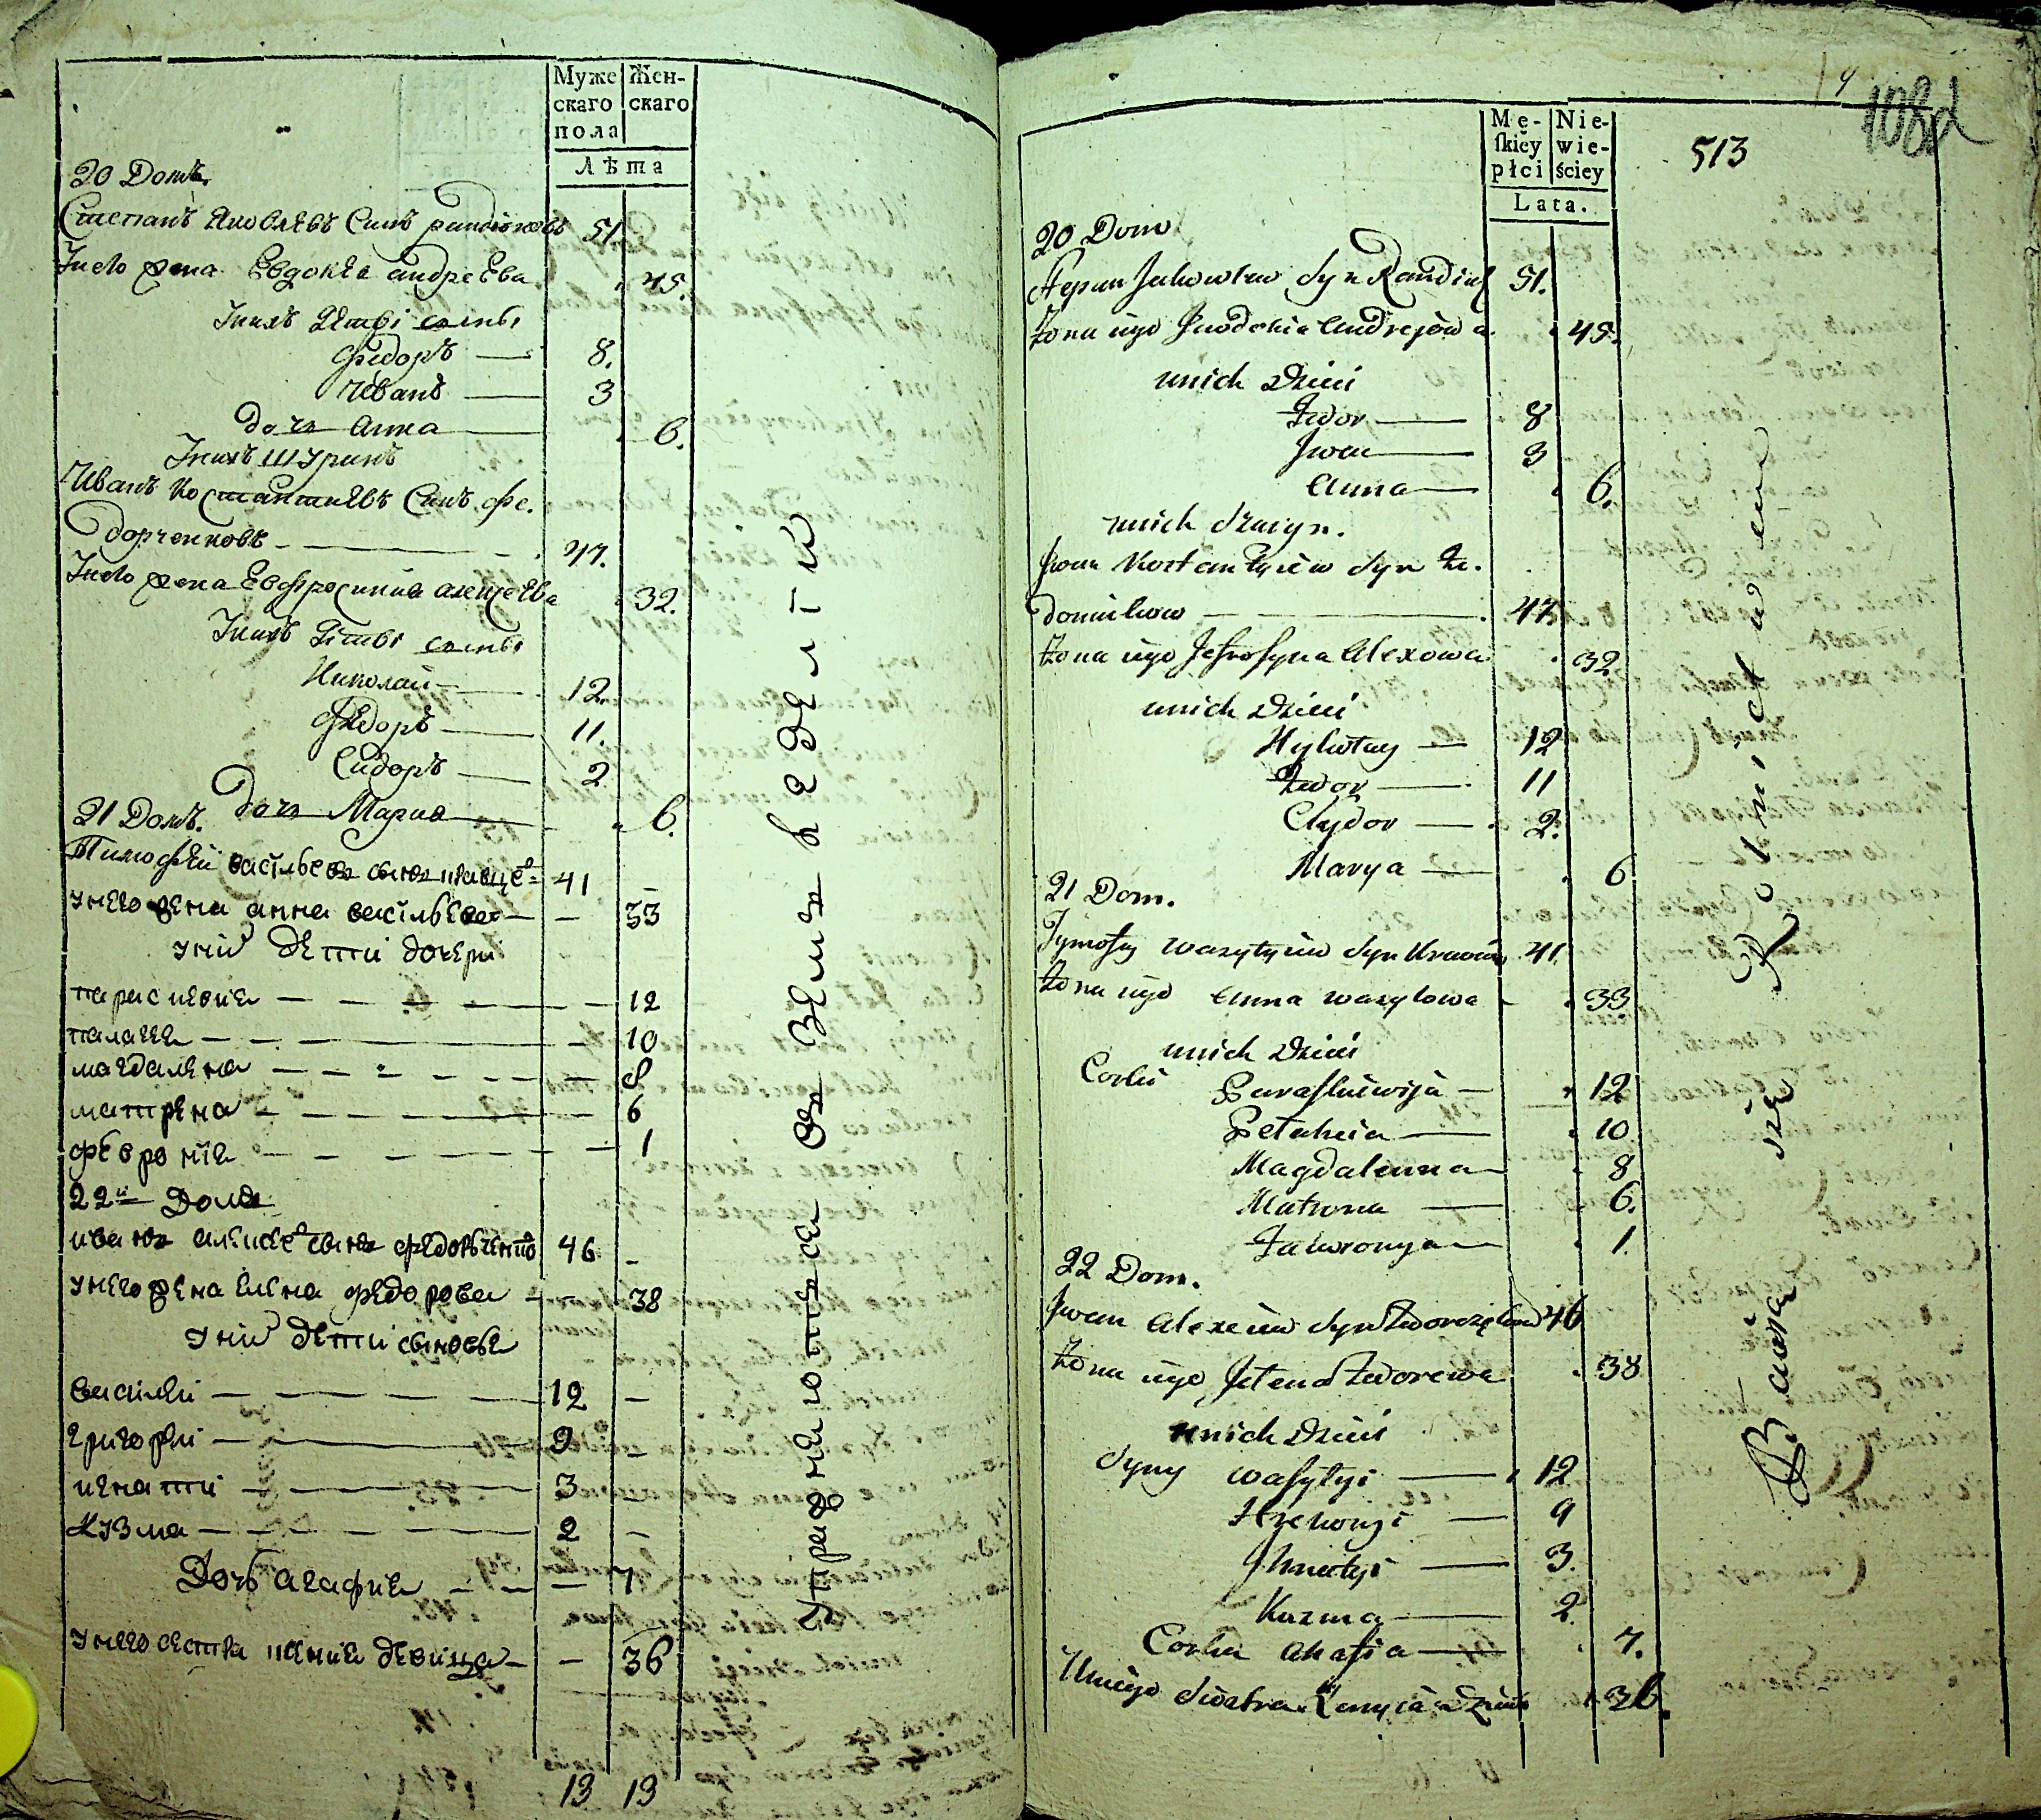 Муже Жен-
скаго скаго
пола
Лѣта
20 Домъ.
Степанъ Яковлевъ Синъ 51
Унего жена Евдокѣя андреева 45.
Унихъ Дѣти сыны
Федоръ 8.
Иванъ 3
дочь Анна 6.
Унихъ Шуринъ
Иванъ Костантиевъ Синъ Фе.
дорченковъ 47.
Унего жена Евфросиния алексеева 32.
Унихъ Дѣти сыны
Николай 12.
Федоръ 11.
Сидоръ 2
дочь Мария 6.
21 Домъ.
Тимофей васильевъ сынъ кравцо 41
унего жена анна васильева 33
уних дети дочери
параскевия 12
палагея 10
магдалена 8
матрена 6
феврония 1
22й Домъ
иванъ алексее сынъ федорченко 46
унего жена елена федорова 38
уних дети сыновья
василей 12
григорей 9
игнатий 3
кузма 2
Дочь агафия 7
унего сестра ксения девица 36
13 13
упражняютъся въ земле
9
108
513
Mę- Nie-
ſkiéy wie-
płci ściey
Lata.
20 Dom
Stepan Jakowlew Syn 51.
żona iego Jewdokia Andrejowa 45.
unich Dzieci
Fedor 8
Iwan 3
Anna 6.
unich szuryn.
Iwan Kostantyiew Syn Fe.
47.
żona iego Jefrosyna Alexowa 32
unich Dzieci
Mykołay 12
Fedor 11
Sydor 2.
Marya 6
21 Dom.
Tymofey Wasylyiew Syn 41.
żona iego Anna Wasylowa 33
unich Dzieci
Corki Paraskiewija 12
Pelahia 10
Magdalenna 8
Matrona 6.
Fewronya 1.
22 Dom.
Iwan Alexeiew Syn 46
żona iego Jelena Fedorowa 38
unich Dzieci
Syny Wasylyi 12
Hrehoryi 9
Ihnatyi 3.
Kuzma 2.
Corka Ahafia 7.
Uniego Siostra 36.